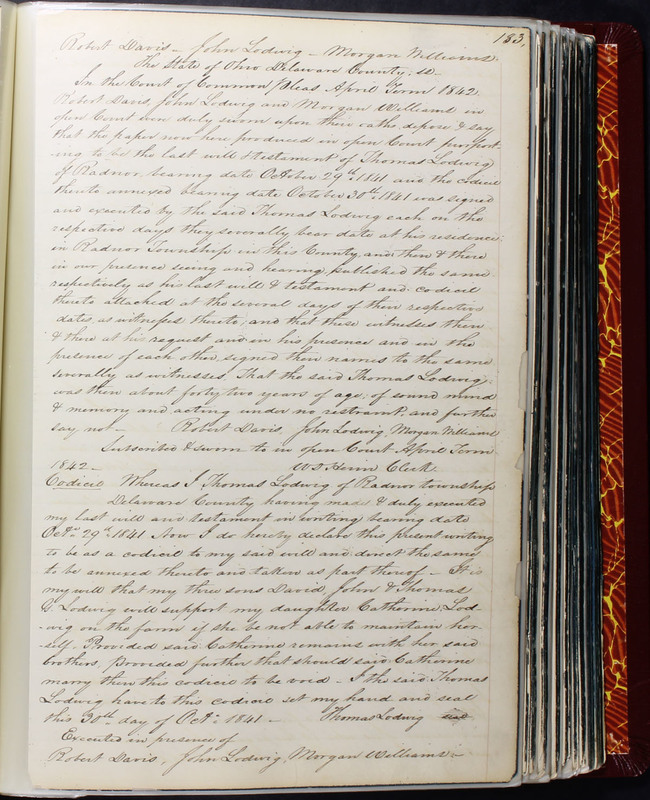 183,
Robert Davis – John Lodwig – Morgan Williams.
The State of Ohio Delaware County, ss.
In the Court of Common Pleas April Term 1842.
Robert Davis, John Lodwig and Morgan Williams in
open Court were duly sworn upon their oaths depose & say
that the paper now here produced in open Court purport-
ing to be the last will & testament of Thomas Lodwig
of Radnor, bearing date October 29th 1841 and the codicil
thereto annexed bearing date October 30th 1841 was signed
and executed by the said Thomas Lodwig each on the
respective days they severally bear date at his residence
in Radnor Township in this County, and then & there
in our presence seeing and hearing published the same
respectively as his last will & testament and codicil
thereto attached at the several days of their respective
dates, as witnesses thereto; and that these witnesses then
& there at his request and in his presence and in the
presence of each other, signed their names to the same
severally as witnesses. That the said Thomas Lodwig
was then about forty two years of age, of sound mind
& memory and acting under no restraint, and further
say not – Robert Davis, John Lodwig, Morgan Williams
Subscribed & sworn to in open Court April Term
1842 – Clerk.
Codicil Whereas I Thomas Lodwig of Radnor township
Delaware County having made & duly executed
my last will and testament in writing bearing date
Octr. 29th 1841 Now I do hereby declare this present writing
to be as a codicil to my said will and direct the same
to be annexed thereto and taken as part thereof – It is
my will that my three sons David, John & Thomas
G. Lodwig will support my daughter Catherine Lod-
-wig on the farm if she is not able to maintain her-
-self. Provided said Catherine remains with her said
brothers, provided further that should said Catherine
marry then this codicil to be void – I the said Thomas
Lodwig have to this codicil set my hand and seal
this 30th day of Octr. 1841 – Thomas Lodwig seal
Executed in presence of
Robert Davis, John Lodwig, Morgan Williams –